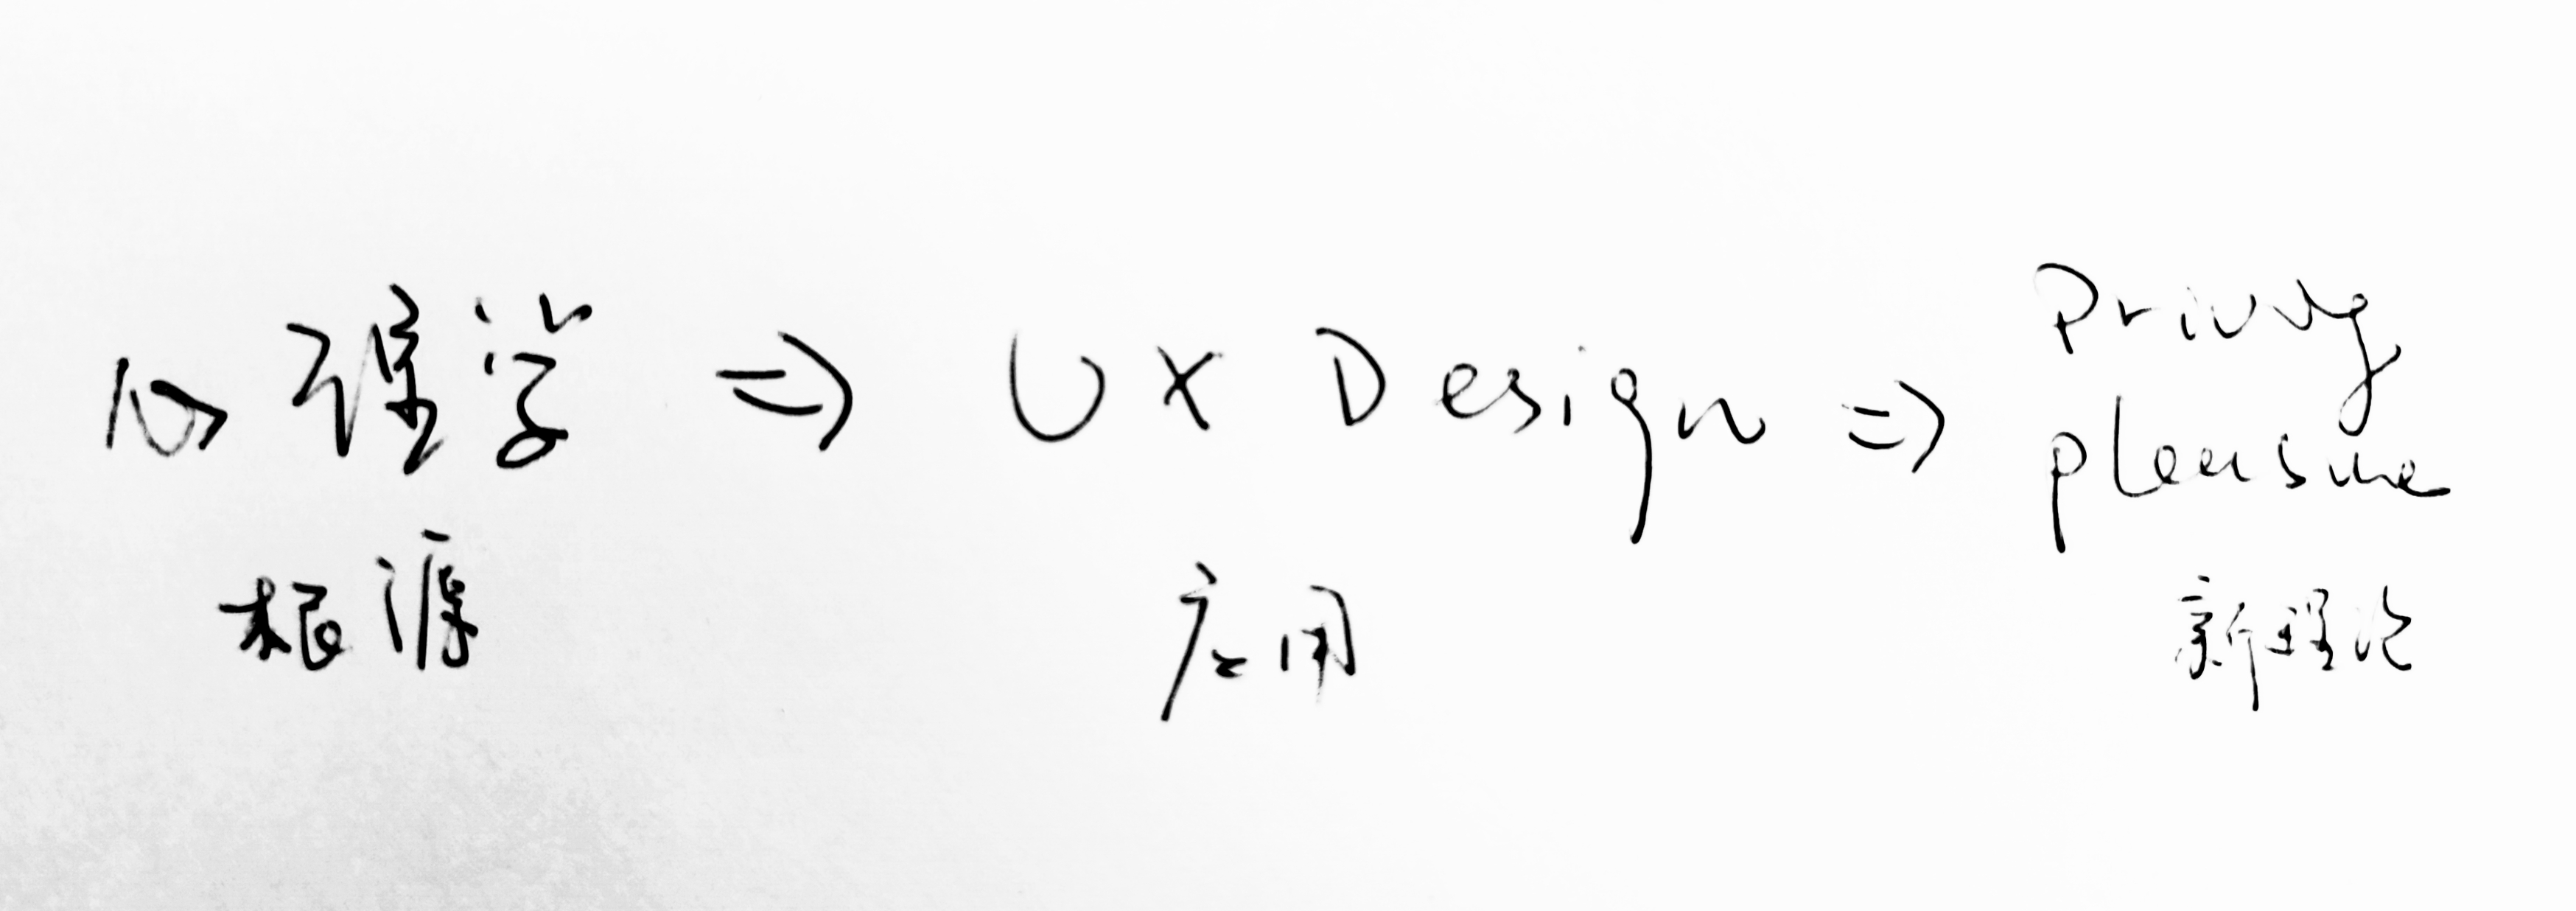 心理学 => UX Design => Privacy
pleasure
根源 应用 新理论